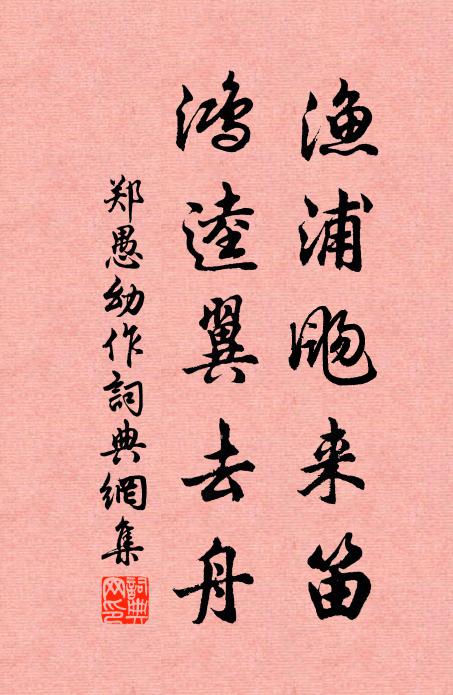 渔浦飏来笛
鸿逵翼去舟
郑愚幼作词典網集
詞典网印